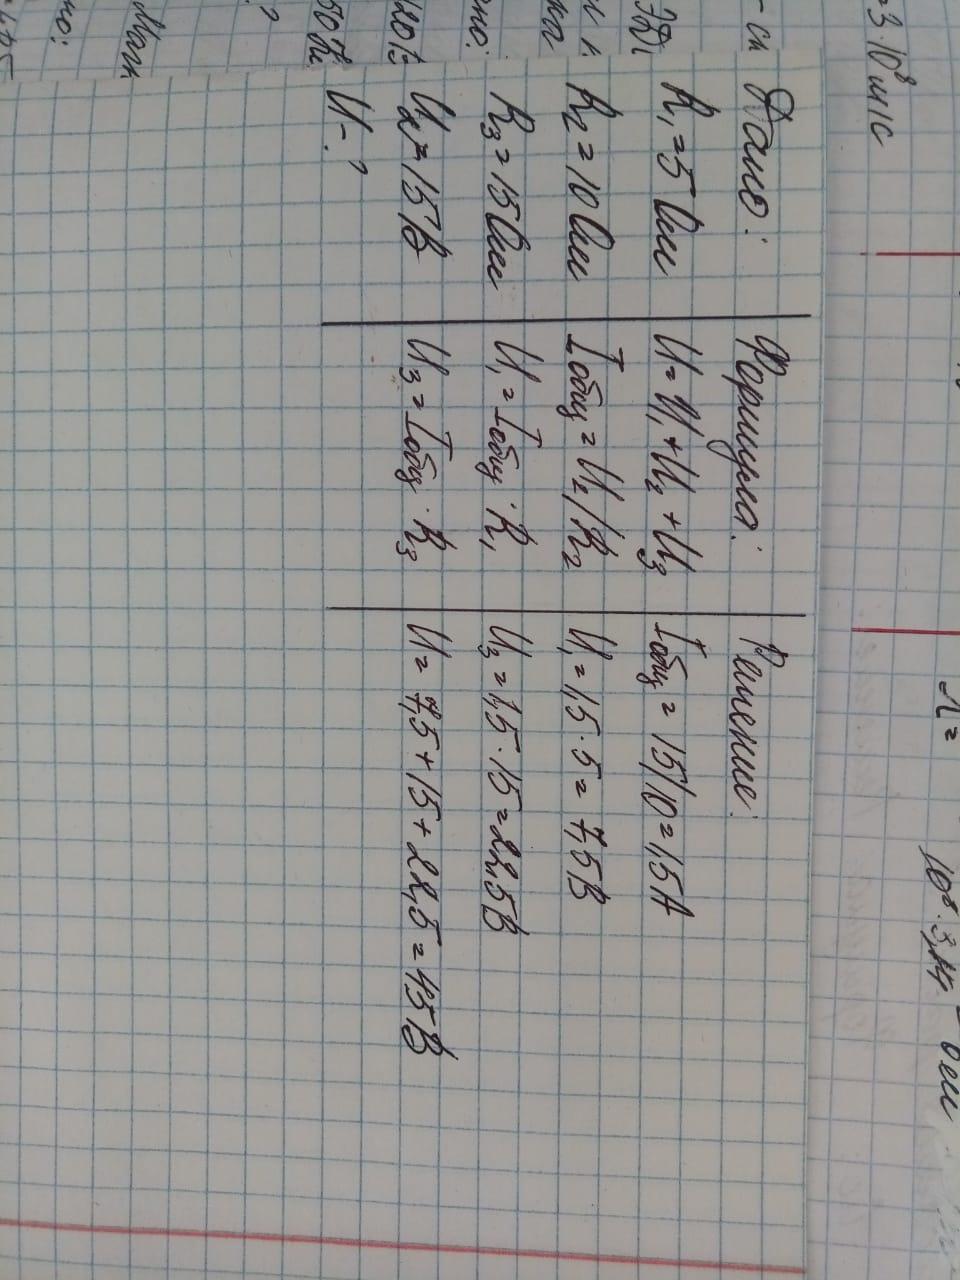 Дано:
R₁=5 Ом
R₂=10 Ом
R₃=15 Ом
U₂=15В
U-?
Формула:
U=U₁+U₂+U₃
Iобщ=U₂/R₂
U₁=Iобщ·R₁
U₃=Iобщ·R₃
Решение:
Iобщ=15/10=1,5А
U₁=1,5·5=7,5В
U₃=1,5·15=22,5В
U=7,5+15+22,5=45В
=3·10⁸м/с